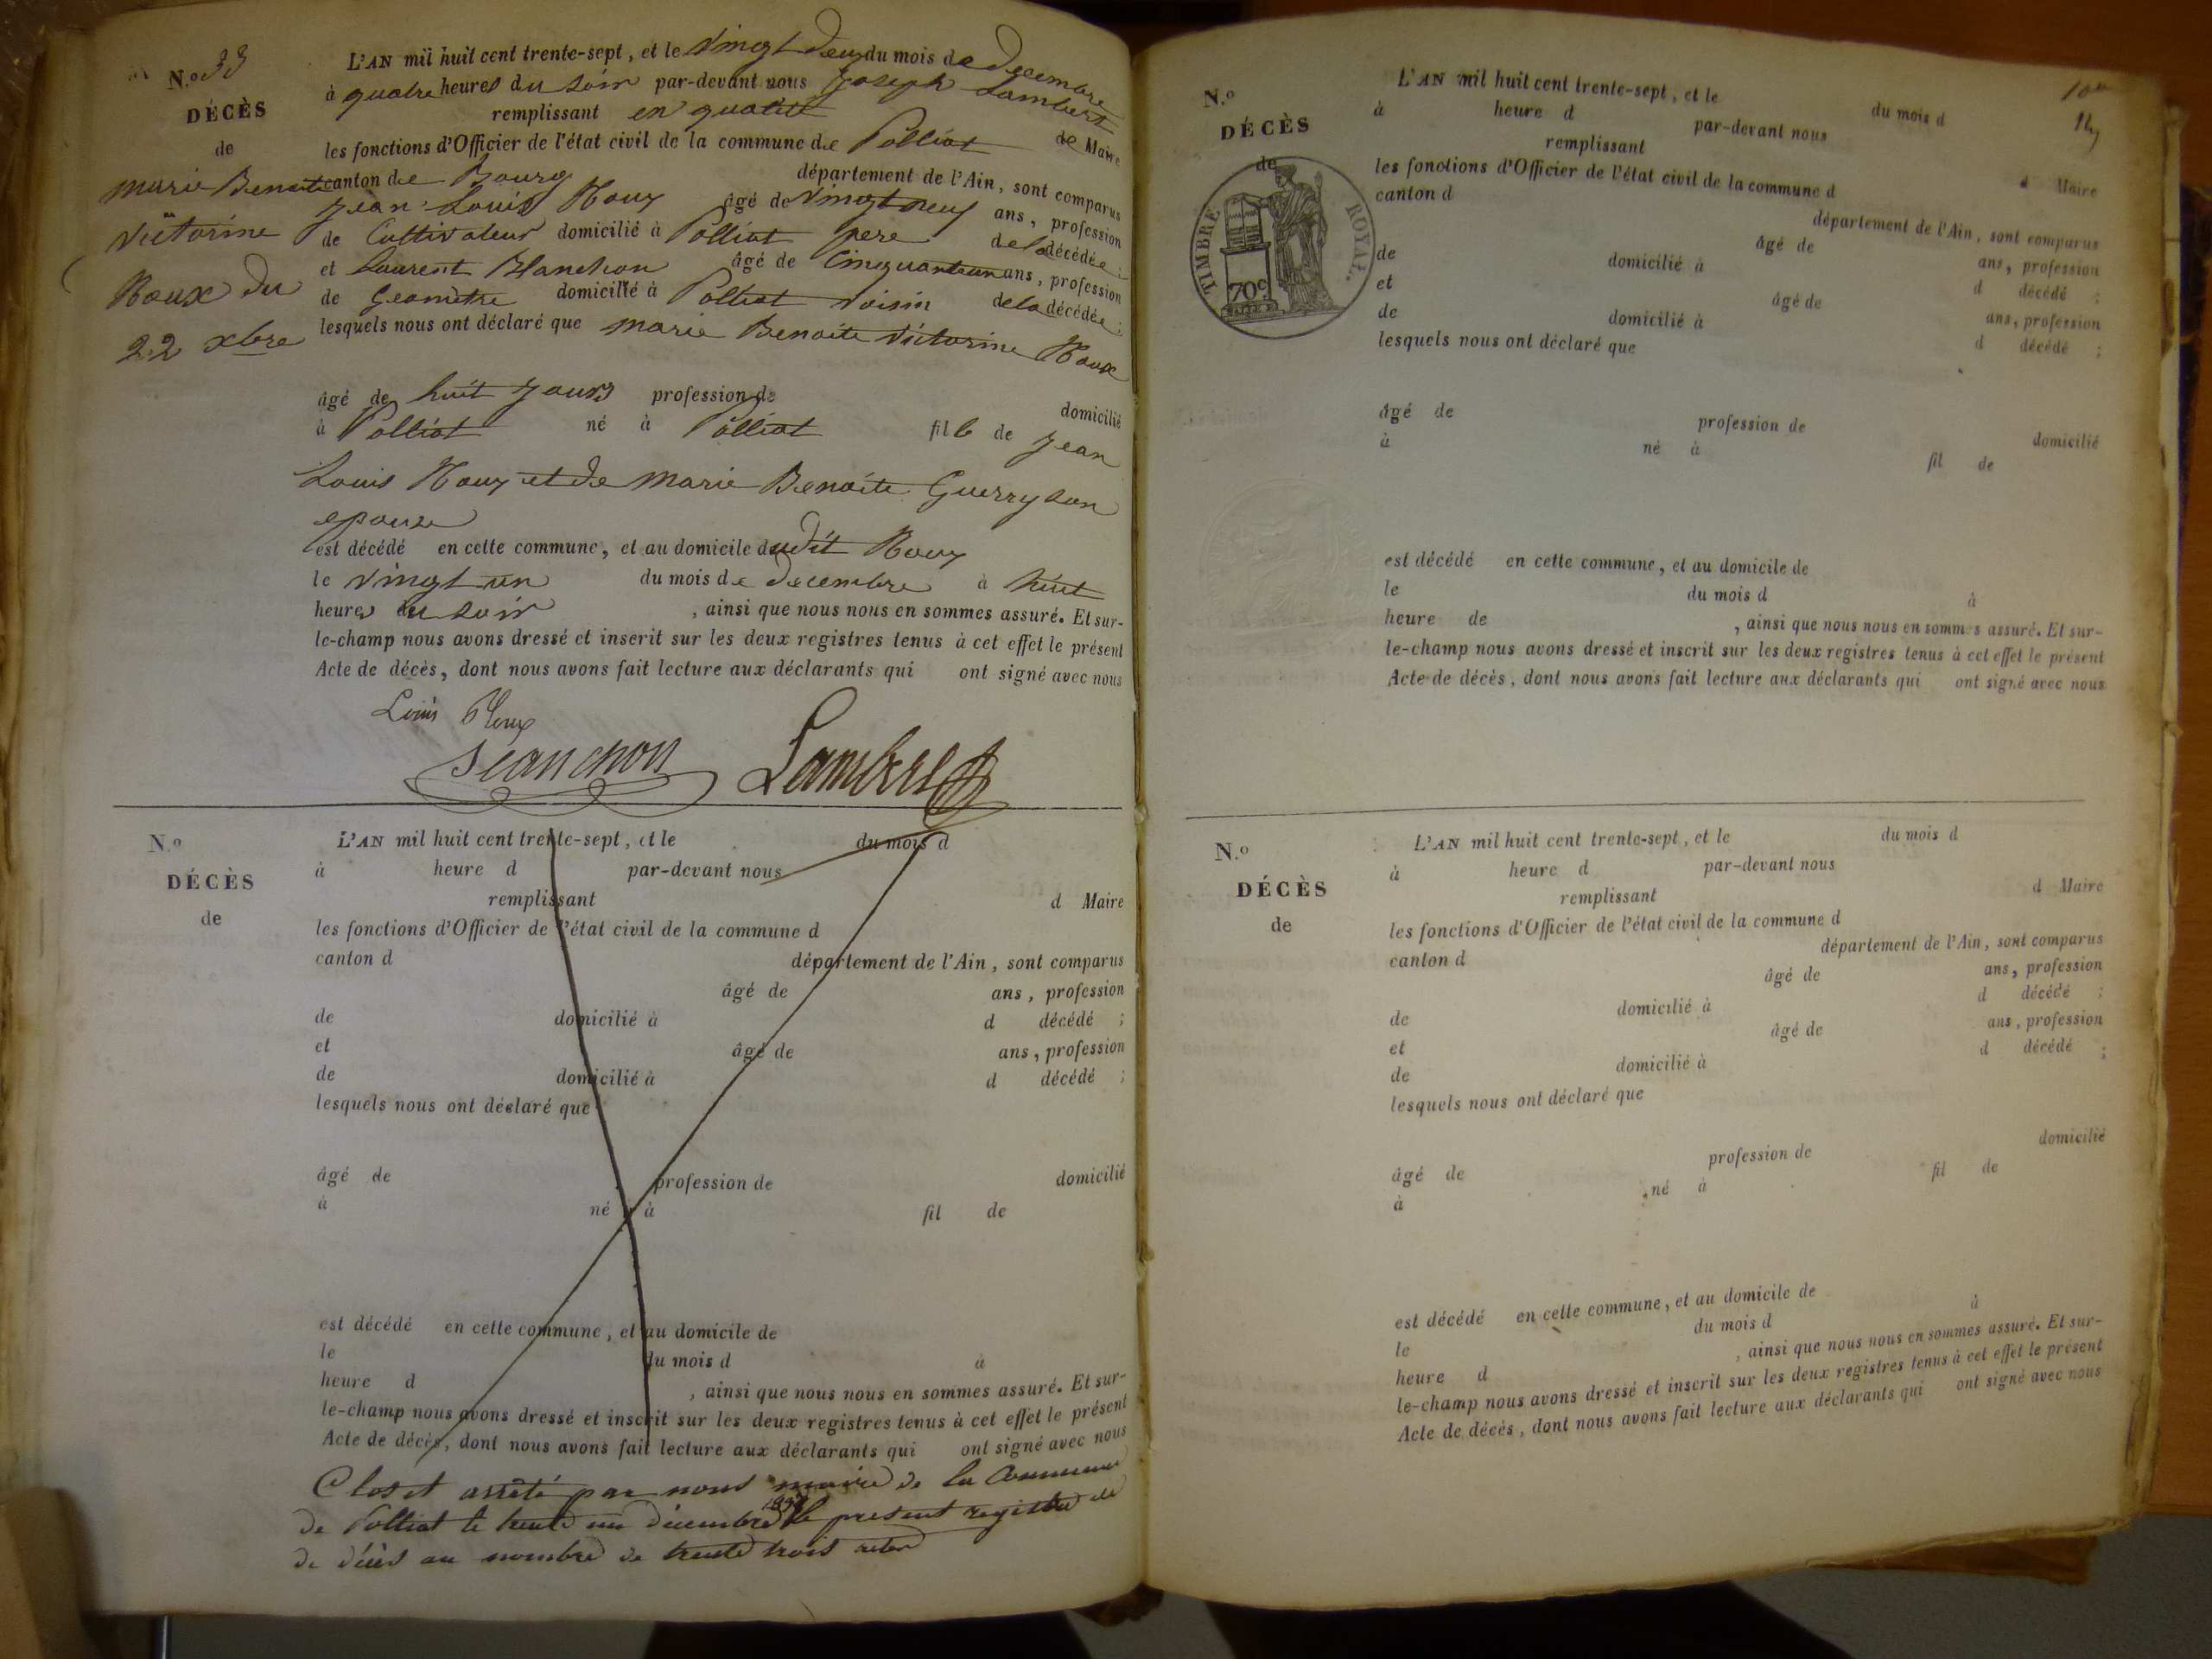 N.º 33
DÉCÈS
de
marie Benoite
victorine
Roux du
22 xbre
L'AN mil huit cent trente-sept, et le vingt deux du mois de decembre
à quatre heures du soir par-devant nous Joseph Lambert
remplissant en qualité de Maire
les fonctions d'Officier de l'état civil de la commune de Polliat
canton de Bourg département de l'Ain, sont comparus
Jean Louis Roux âgé de vingt neuf ans, profession
de Cultivateur domicilié à Polliat pere de la décédée ;
et Laurent Blanchon âgé de Cinquante un ans, profession
de Geometre domicilié à Polliat voisin de la décédée ;
lesquels nous ont déclaré que marie Benoite victorine Roux
âgé de huit jours profession de domicilié
à Polliat né à Polliat fille de Jean
Louis Roux et de Marie Benoite Guerry son
epouse
est décédé en cette commune, et au domicile dudit Roux
le vingt un du mois de decembre à huit
heures du soir, ainsi que nous nous en sommes assuré. Et sur-
le-champ nous avons dressé et inscrit sur les deux registres tenus à cet effet le présent
Acte de décès, dont nous avons fait lecture aux déclarants qui ont signé avec nous
Louis Roux
Blanchon Lambert
N.º
DÉCÈS
de
L'AN mil huit cent trente-sept, et le du mois d
à heure d par-devant nous
remplissant d Maire
les fonctions d'Officier de l'état civil de la commune d
canton d département de l'Ain, sont comparus
âgé de ans, profession
de domicilié à d décédé ;
et âgé de ans, profession
de domicilié à d décédé ;
lesquels nous ont déclaré que
âgé de profession de domicilié
à né à fil de
est décédé en cette commune, et au domicile de
le du mois d à
heure d , ainsi que nous nous en sommes assuré. Et sur-
le-champ nous avons dressé et inscrit sur les deux registres tenus à cet effet le présent
Acte de décès, dont nous avons fait lecture aux déclarants qui ont signé avec nous
Clos et arrêté par nous maire de la Commune
de Polliat le trente un décembre 1837 le present registre de
de décès au nombre de trente trois
14
N.º
DÉCÈS
de
TIMBRE ROYAL.
70c
L'AN mil huit cent trente-sept, et le du mois d
à heure d par-devant nous
remplissant d Maire
les fonctions d'Officier de l'état civil de la commune d
canton d département de l'Ain, sont comparus
âgé de ans, profession
de domicilié à d décédé ;
et âgé de ans, profession
de domicilié à d décédé ;
lesquels nous ont déclaré que
âgé de profession de domicilié
à né à fil de
est décédé en cette commune, et au domicile de
le du mois d à
heure de , ainsi que nous nous en sommes assuré. Et sur-
le-champ nous avons dressé et inscrit sur les deux registres tenus à cet effet le présent
Acte de décès, dont nous avons fait lecture aux déclarants qui ont signé avec nous
N.º
DÉCÈS
de
L'AN mil huit cent trente-sept, et le du mois d
à heure d par-devant nous
remplissant d Maire
les fonctions d'Officier de l'état civil de la commune d
canton d département de l'Ain, sont comparus
âgé de ans, profession
de domicilié à d décédé ;
et âgé de ans, profession
de domicilié à d décédé ;
lesquels nous ont déclaré que
âgé de profession de domicilié
à né à fil de
est décédé en cette commune, et au domicile de
le du mois d à
heure d , ainsi que nous nous en sommes assuré. Et sur-
le-champ nous avons dressé et inscrit sur les deux registres tenus à cet effet le présent
Acte de décès, dont nous avons fait lecture aux déclarants qui ont signé avec nous